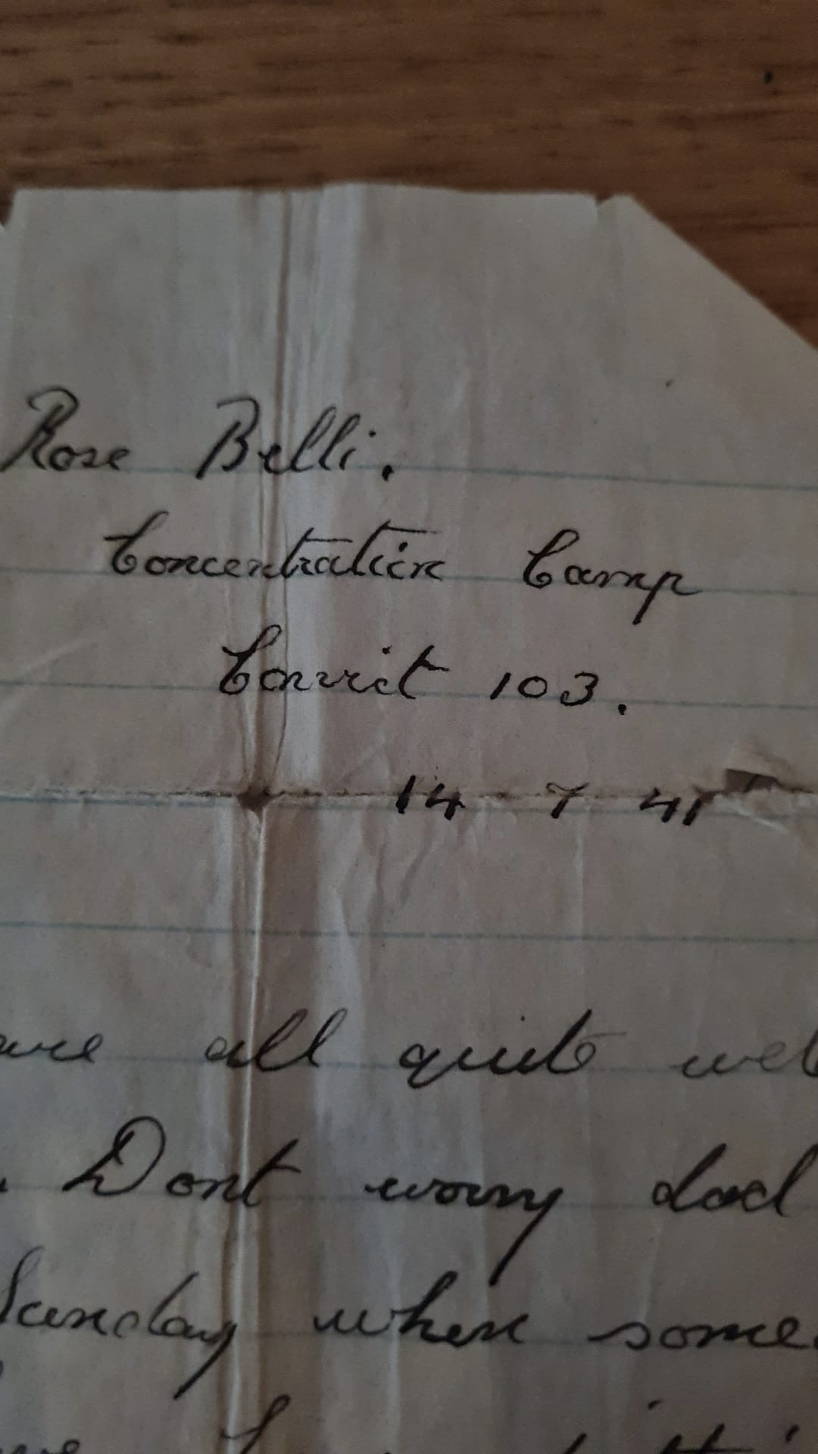 Rose Belli.
Concentration Camp
Convict 103.
14 7 41
all quite
Dont worry dad
Sunday when some